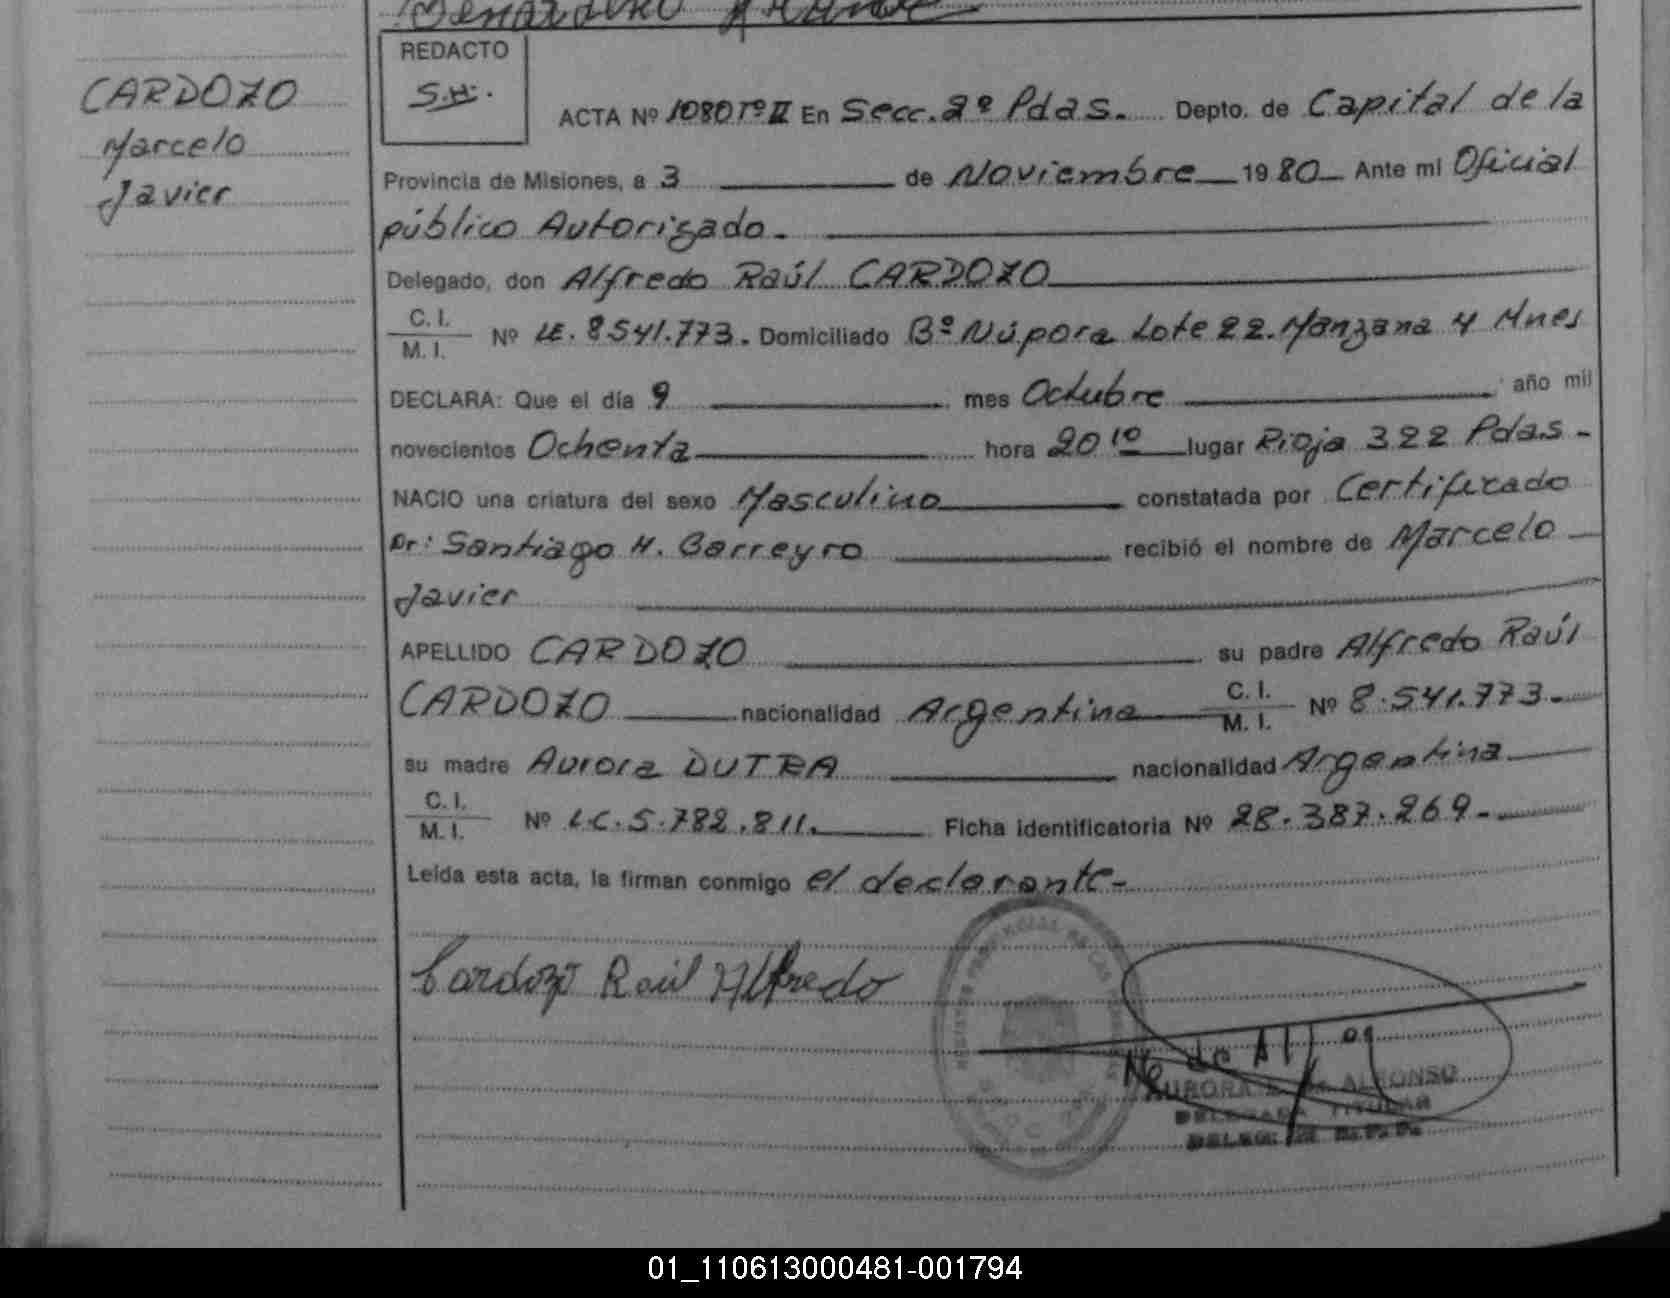 REDACTO
S.H.
CARDOZO
Marcelo
Javier
ACTA Nº 1080 Tº II En Secc. 2º Pdas. Depto. de Capital de la
Provincia de Misiones, a 3 de Noviembre 1980 Ante mi Oficial
público Autorizado.
Delegado, don Alfredo Raúl CARDOZO
C. I.
M. I. Nº LE. 8.541.773. Domiciliado Bº Ñúpora Lote 22. Manzana 4 Mnes
DECLARA: Que el día 9 mes Octubre año mil
novecientos Ochenta hora 20 10 lugar Rioja 322 Pdas.
NACIO una criatura del sexo Masculino constatada por Certificado
Dr: Santiago H. Barreyro recibió el nombre de Marcelo
Javier
APELLIDO CARDOZO su padre Alfredo Raúl
CARDOZO nacionalidad Argentina C. I. M. I. Nº 8.541.773.
su madre Aurora DUTRA nacionalidad Argentina
C. I.
M. I. Nº LC. 5.782.811. Ficha identificatoria Nº 28.387.269.
Leída esta acta, la firman conmigo el declarante.
Cardozo Raúl Alfredo
AURORA ALFONSO
DELEGADA TITULAR
01_110613000481-001794